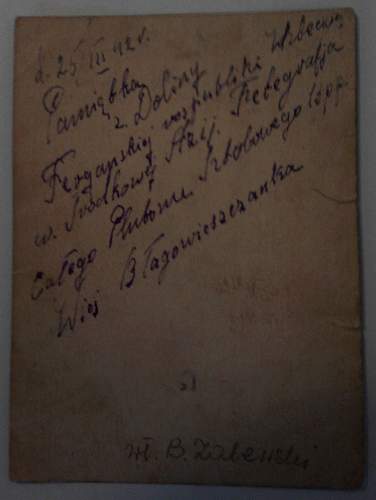 d. 25 III 42 r.
Pamiątka
z Doliny
Fergańskiej republiki Uzbeckiej
w Środkowej Azji. Fotografja
całego Plutonu Sztabowego 15 p.p.
Wieś Błagowieszczanka
wł. B. Zalewski